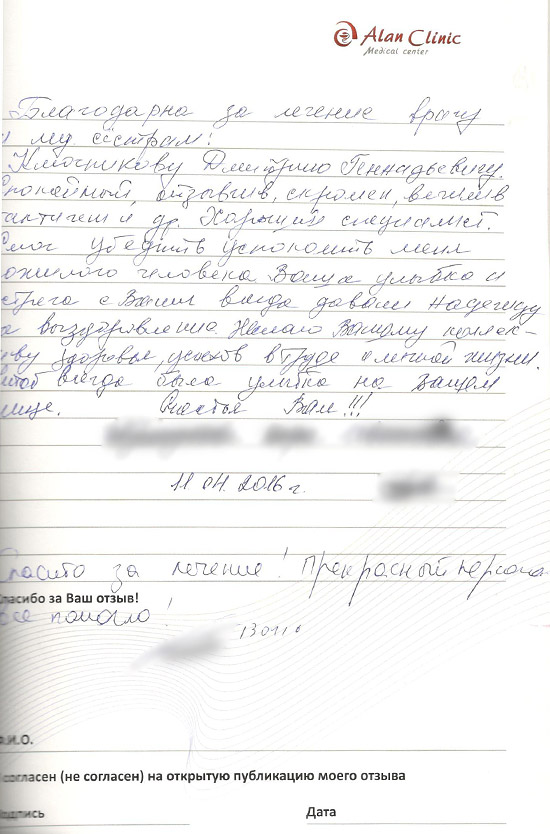 Alan Clinic
Medical center
Благодарна за лечение врачу
и мед. сёстрам:
Ключникову Дмитрию Геннадьевичу.
Спокойный, отзывчив, скромен, вежлив
тактичен и др. Хороший специалист.
Смог убедить успокоить меня
пожилого человека. Ваша улыбка и
встреча с Вами всегда давали надежду
на выздоровление. Желаю Вашему коллек-
тиву здоровья, успехов в труде и личной жизни.
Чтоб всегда была улыбка на Вашем
лице. Счастья Вам!!!
11 04. 2016 г.
Спасибо за лечение! Прекрасный персонал
Спасибо за Ваш отзыв!
все помогло!
130116
Ф.И.О.
согласен (не согласен) на открытую публикацию моего отзыва
Подпись Дата